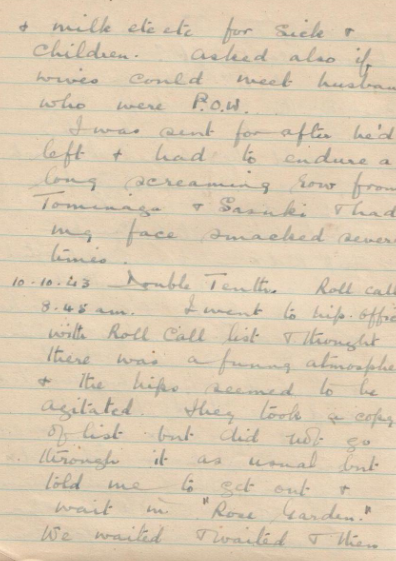 & milk etc etc for Sick &
Children. Asked also if
wives could meet husban
who were P.O.W.
I was sent for after he'd
left & had to endure a
long screaming row from
Tominaga & Sasuki & had
my face smacked sever
times.
10.10.43 Double Tenth. Roll call
8.45 am. I went to nip. offic
with Roll Call list & thought
there was a funny atmosphe
& the nips seemed to be
agitated. They took a copy
of list but did not go
through it as usual but
told me to get out &
wait in "Rose Garden."
We waited & waited & then